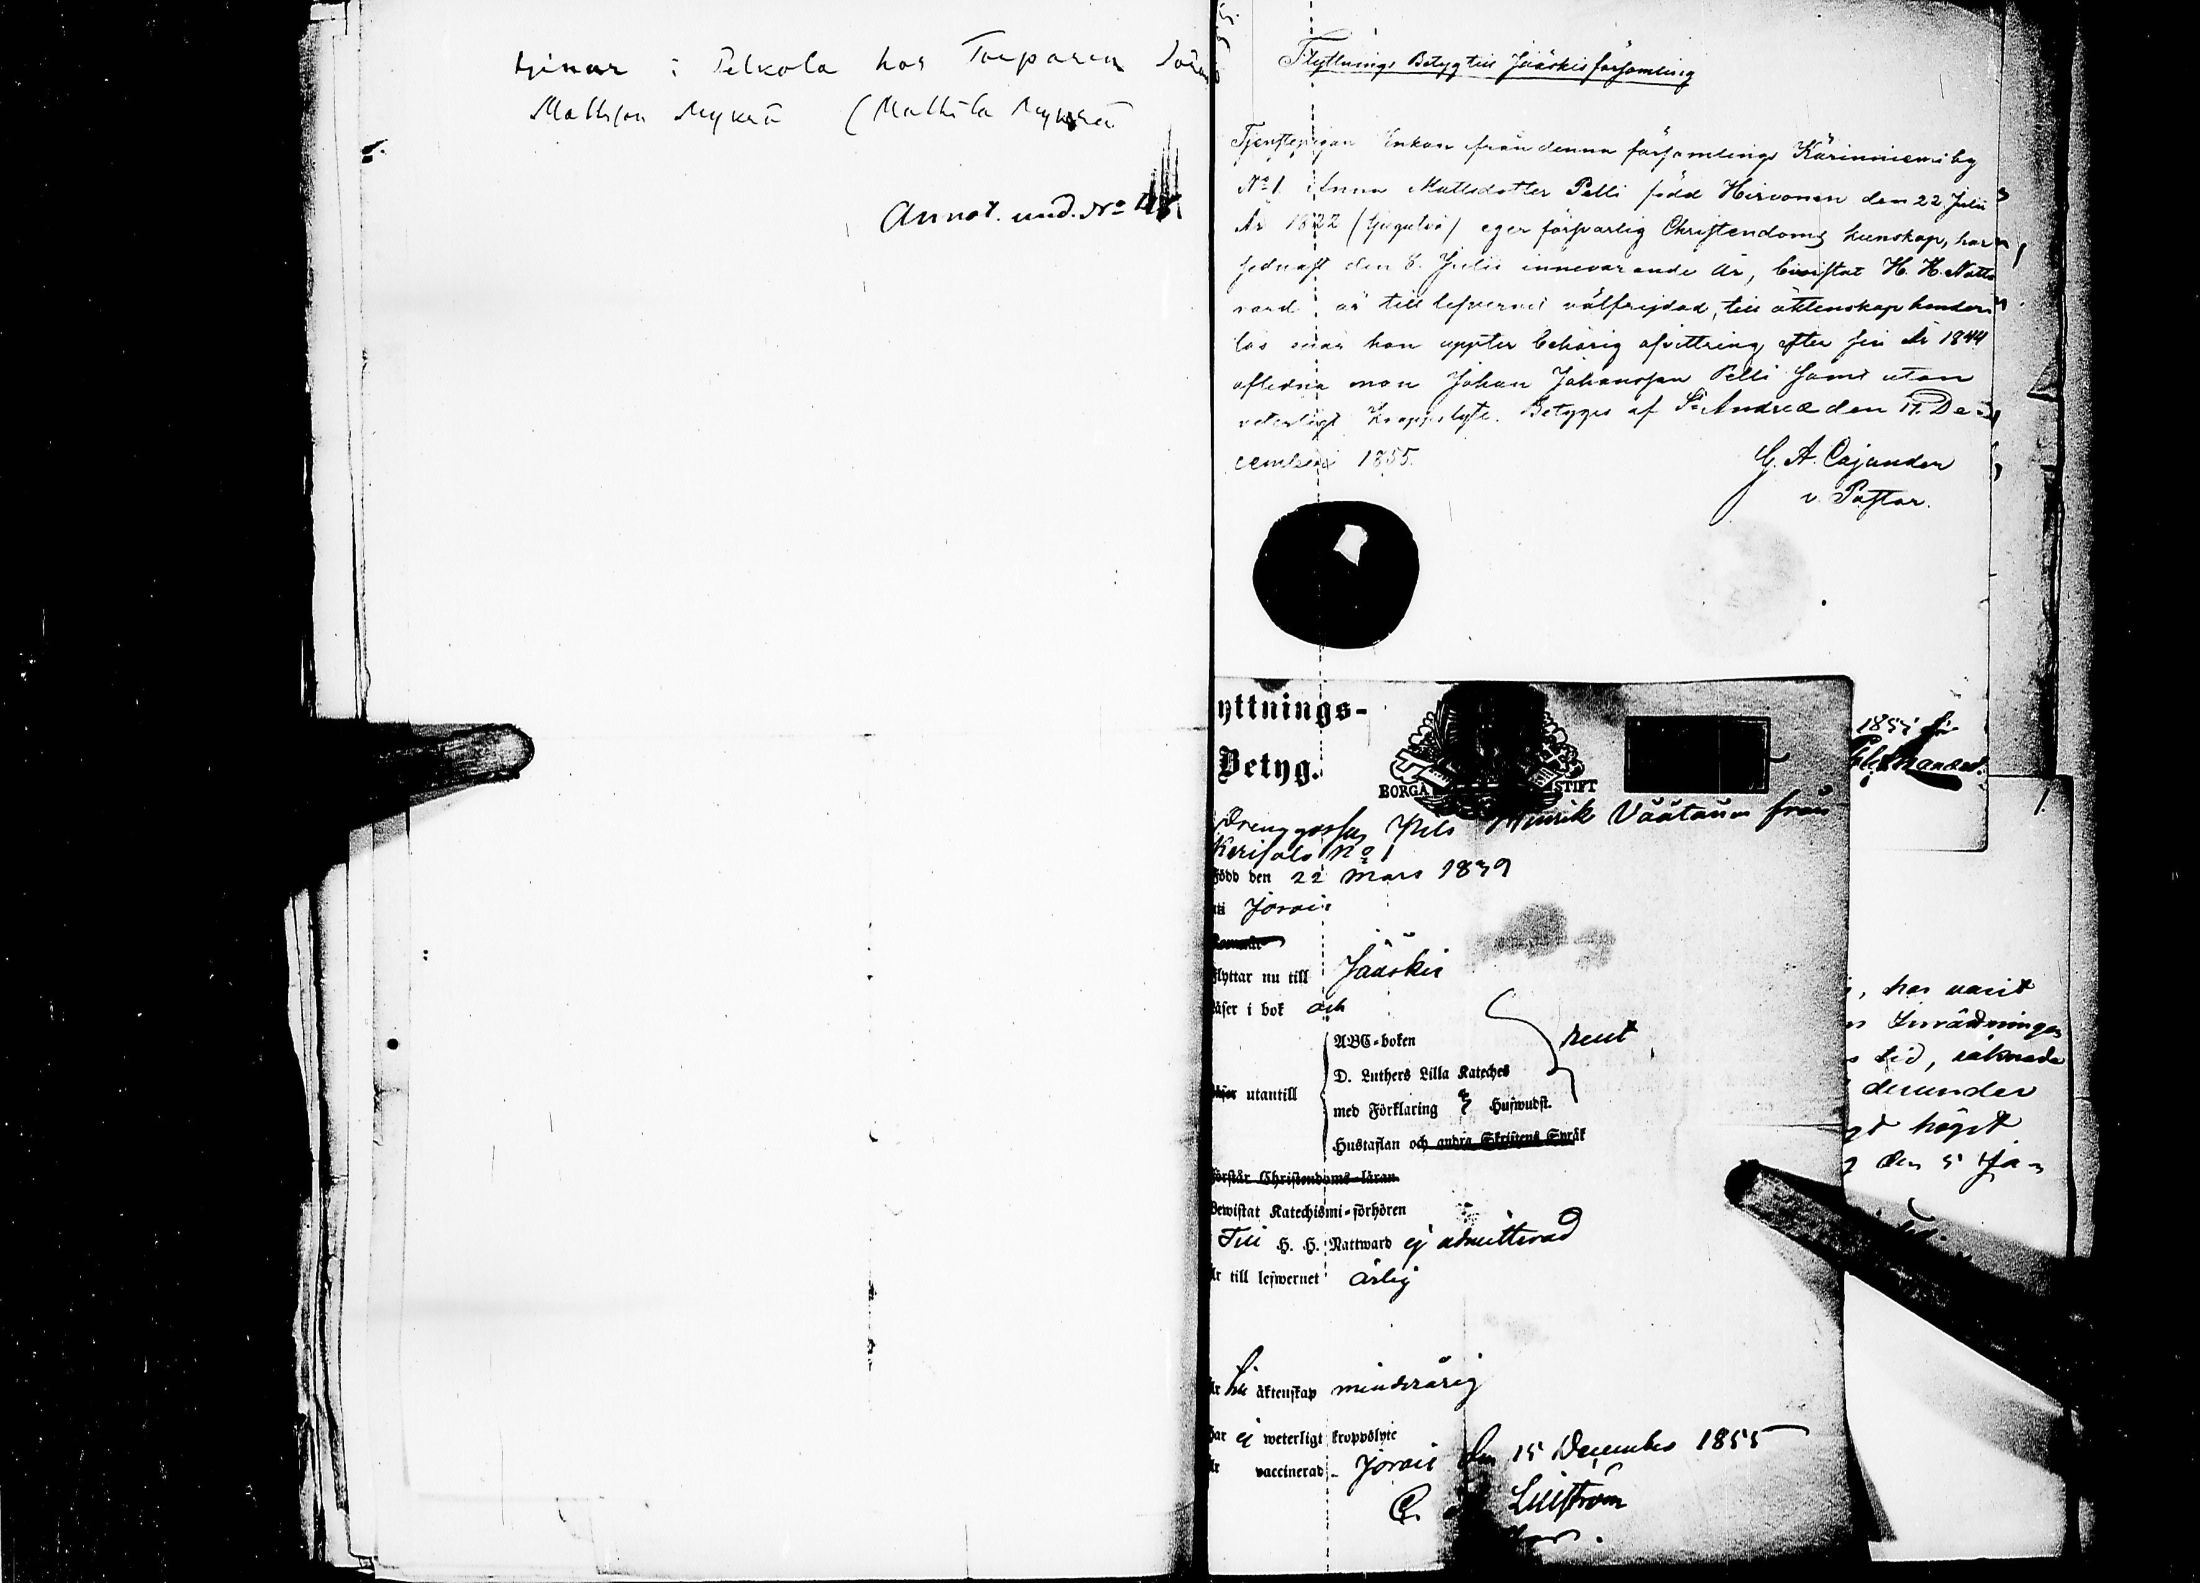 tjenar i Pelkola hos Torparen Jöran
Mattsson Mykrä (Matthila Mykrä
Annot. und. No
Flyttnings Betyg till Jääskis församling
Tjenstepigan Enkan från denna församlings Kärinniemi by
No 1. Anna Mattsdotter Pelli född Hirvonen den 22 Julii
År 1822 (tjugutvå) eger försvarlig Christendoms kunskap, har
sednast den 8. Julii innevarande år, bivistat H. H. Natt-
vard är till lefvernet välfrejdad, till äktenskap hinders
lös när hon uppter behörig afvittring efter sin År 1844
aflidna man Johan Johansson Pelli samt utan
veterligt kroppslyte. Betygas af St Andreæ den 17. De-
cember 1855.
G. A. Cajander
v. Pastor.
yttnings-
Betyg.
BORGÅ STIFT
Drenggossen Nils Henrik Väätäinen från
Kerisalo No 1
Född den 22 Mars 1839
uti Jorois
Flyttar nu till Jääskis
Läser i bok och
ABC-boken
D. Luthers Lilla Kateches rent
utantill
med Förklaring & Huswudst.
Hustaflan och andra Skriftens Språk
Förstår Christendoms-läran
Bewistat Katechismi-förhören
Till H. H. Nattward ej admitterad
Är till lefwernet ärlig
Är till äktenskap minderårig
Har ej weterligt kroppslyte
Är vaccinerad. Jorois den 15 December 1855
C. Lilliström
, har varit
Inrättningen
tid, saknade
derunder
högst
den 5 Ja-